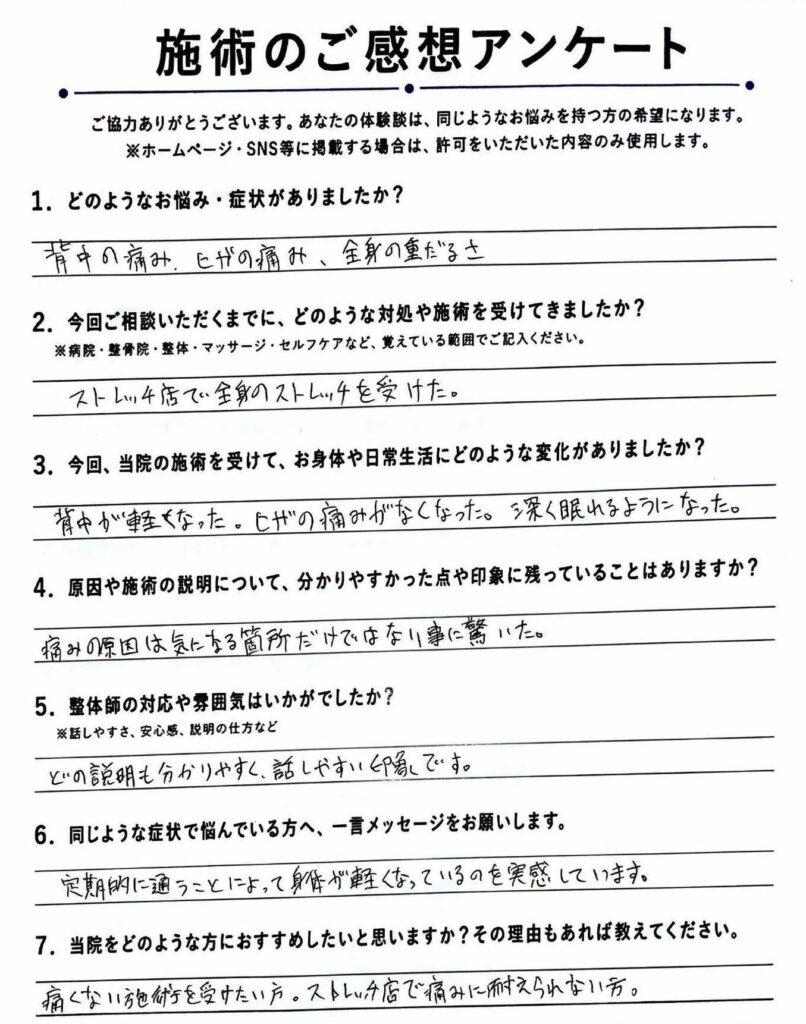 施術のご感想アンケート
ご協力ありがとうございます。あなたの体験談は、同じようなお悩みを持つ方の希望になります。
※ホームページ・SNS等に掲載する場合は、許可をいただいた内容のみ使用します。
1. どのようなお悩み・症状がありましたか？
背中の痛み、ヒザの痛み、全身の重だるさ
2. 今回ご相談いただくまでに、どのような対処や施術を受けてきましたか？
※病院・整骨院・整体・マッサージ・セルフケアなど、覚えている範囲でご記入ください。
ストレッチ店で全身のストレッチを受けた。
3. 今回、当院の施術を受けて、お身体や日常生活にどのような変化がありましたか？
背中が軽くなった。ヒザの痛みがなくなった。深く眠れるようになった。
4. 原因や施術の説明について、分かりやすかった点や印象に残っていることはありますか？
痛みの原因は気になる箇所だけではない事に驚いた。
5. 整体師の対応や雰囲気はいかがでしたか？
※話しやすさ、安心感、説明の仕方など
どの説明も分かりやすく、話しやすい印象です。
6. 同じような症状で悩んでいる方へ、一言メッセージをお願いします。
定期的に通うことによって身体が軽くなっているのを実感しています。
7. 当院をどのような方におすすめしたいと思いますか？その理由もあれば教えてください。
痛くない施術を受けたい方。ストレッチ店で痛みに耐えられない方。